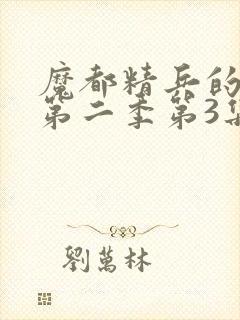 魔都精兵的
第二季第3集
劉萬林